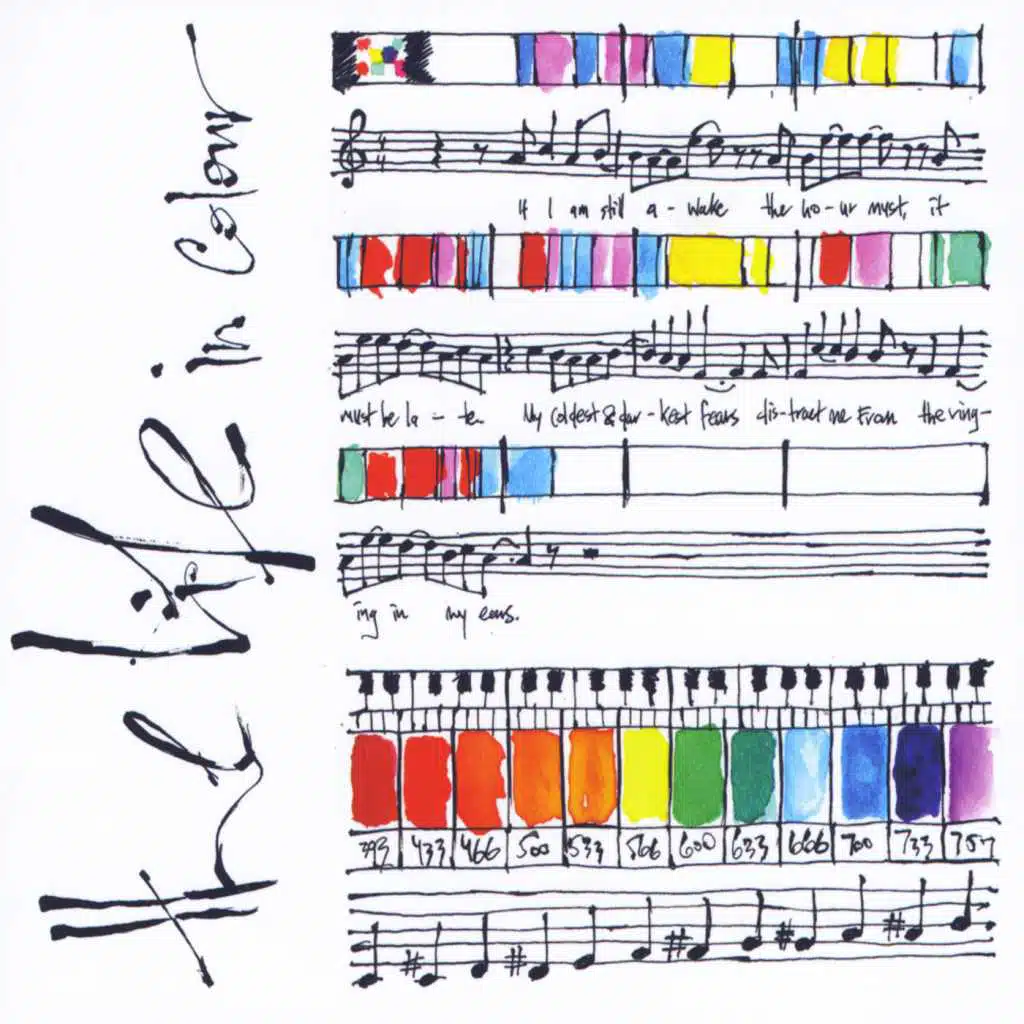 the Life in Colour
If I am still a - wake the ho - ur must, it
must be la - te. My coldest & dar - kest fears dis - tract me From the ring -
ing in my ears.
393 433 466 500 533 566 600 633 666 700 733 757